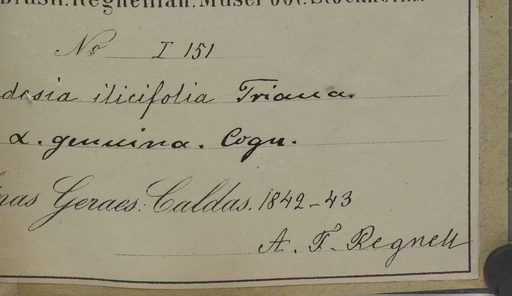 Brasil. Regnellian. Musei bot. Stockholm.
No I 151
desia ilicifolia Triana.
α. genuina. Cogn.
nas Geraes: Caldas. 1842-43
A. F. Regnell